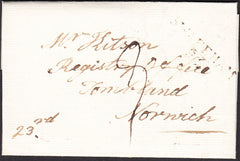 Mr Kitson
Registry Office
Tombland
Norwich
23rd